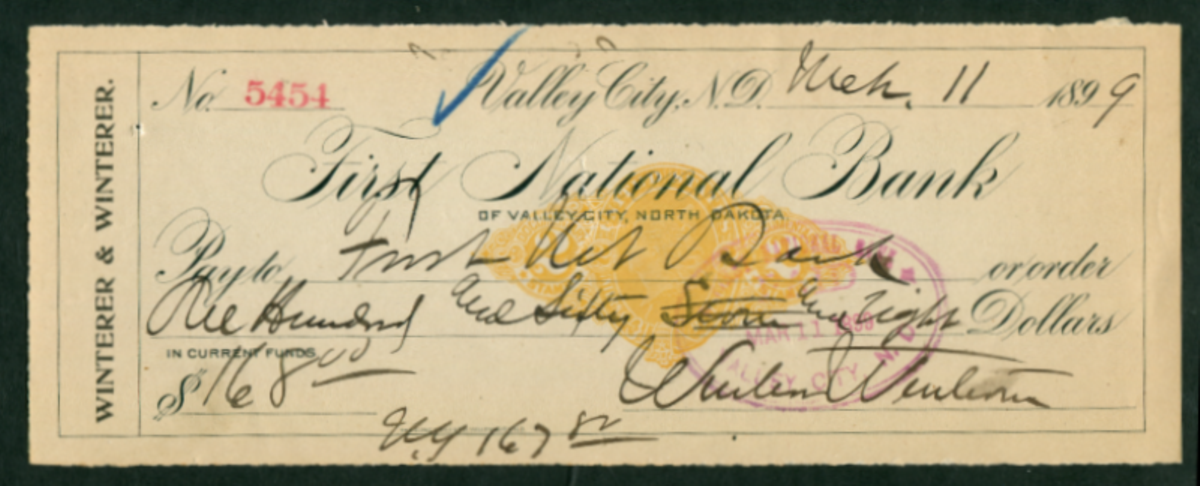 WINTERER & WINTERER.
No. 5454 Valley City, N.D. Mch. 11 1899
First National Bank
OF VALLEY CITY, NORTH DAKOTA
Pay to First Nat Bank or order
One Hundred and Sixty Seven and Eight Dollars
IN CURRENT FUNDS
$168 00
Winterer & Winterer
N.Y 167 80
MAR 11 1899
VALLEY CITY N. D.